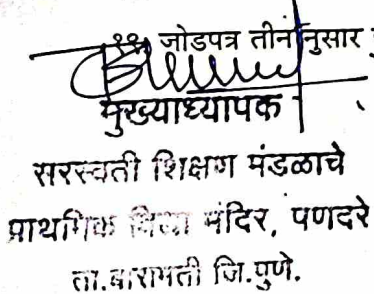 ११) जोडपत्र तीन नुसार
मुख्याध्यापक
सरस्वती शिक्षण मंडळाचे
प्राथमिक विद्या मंदिर, पणदरे
ता.बारामती जि.पुणे.